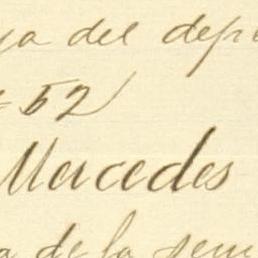 ya del depó
52
Mercedes
a de la sem